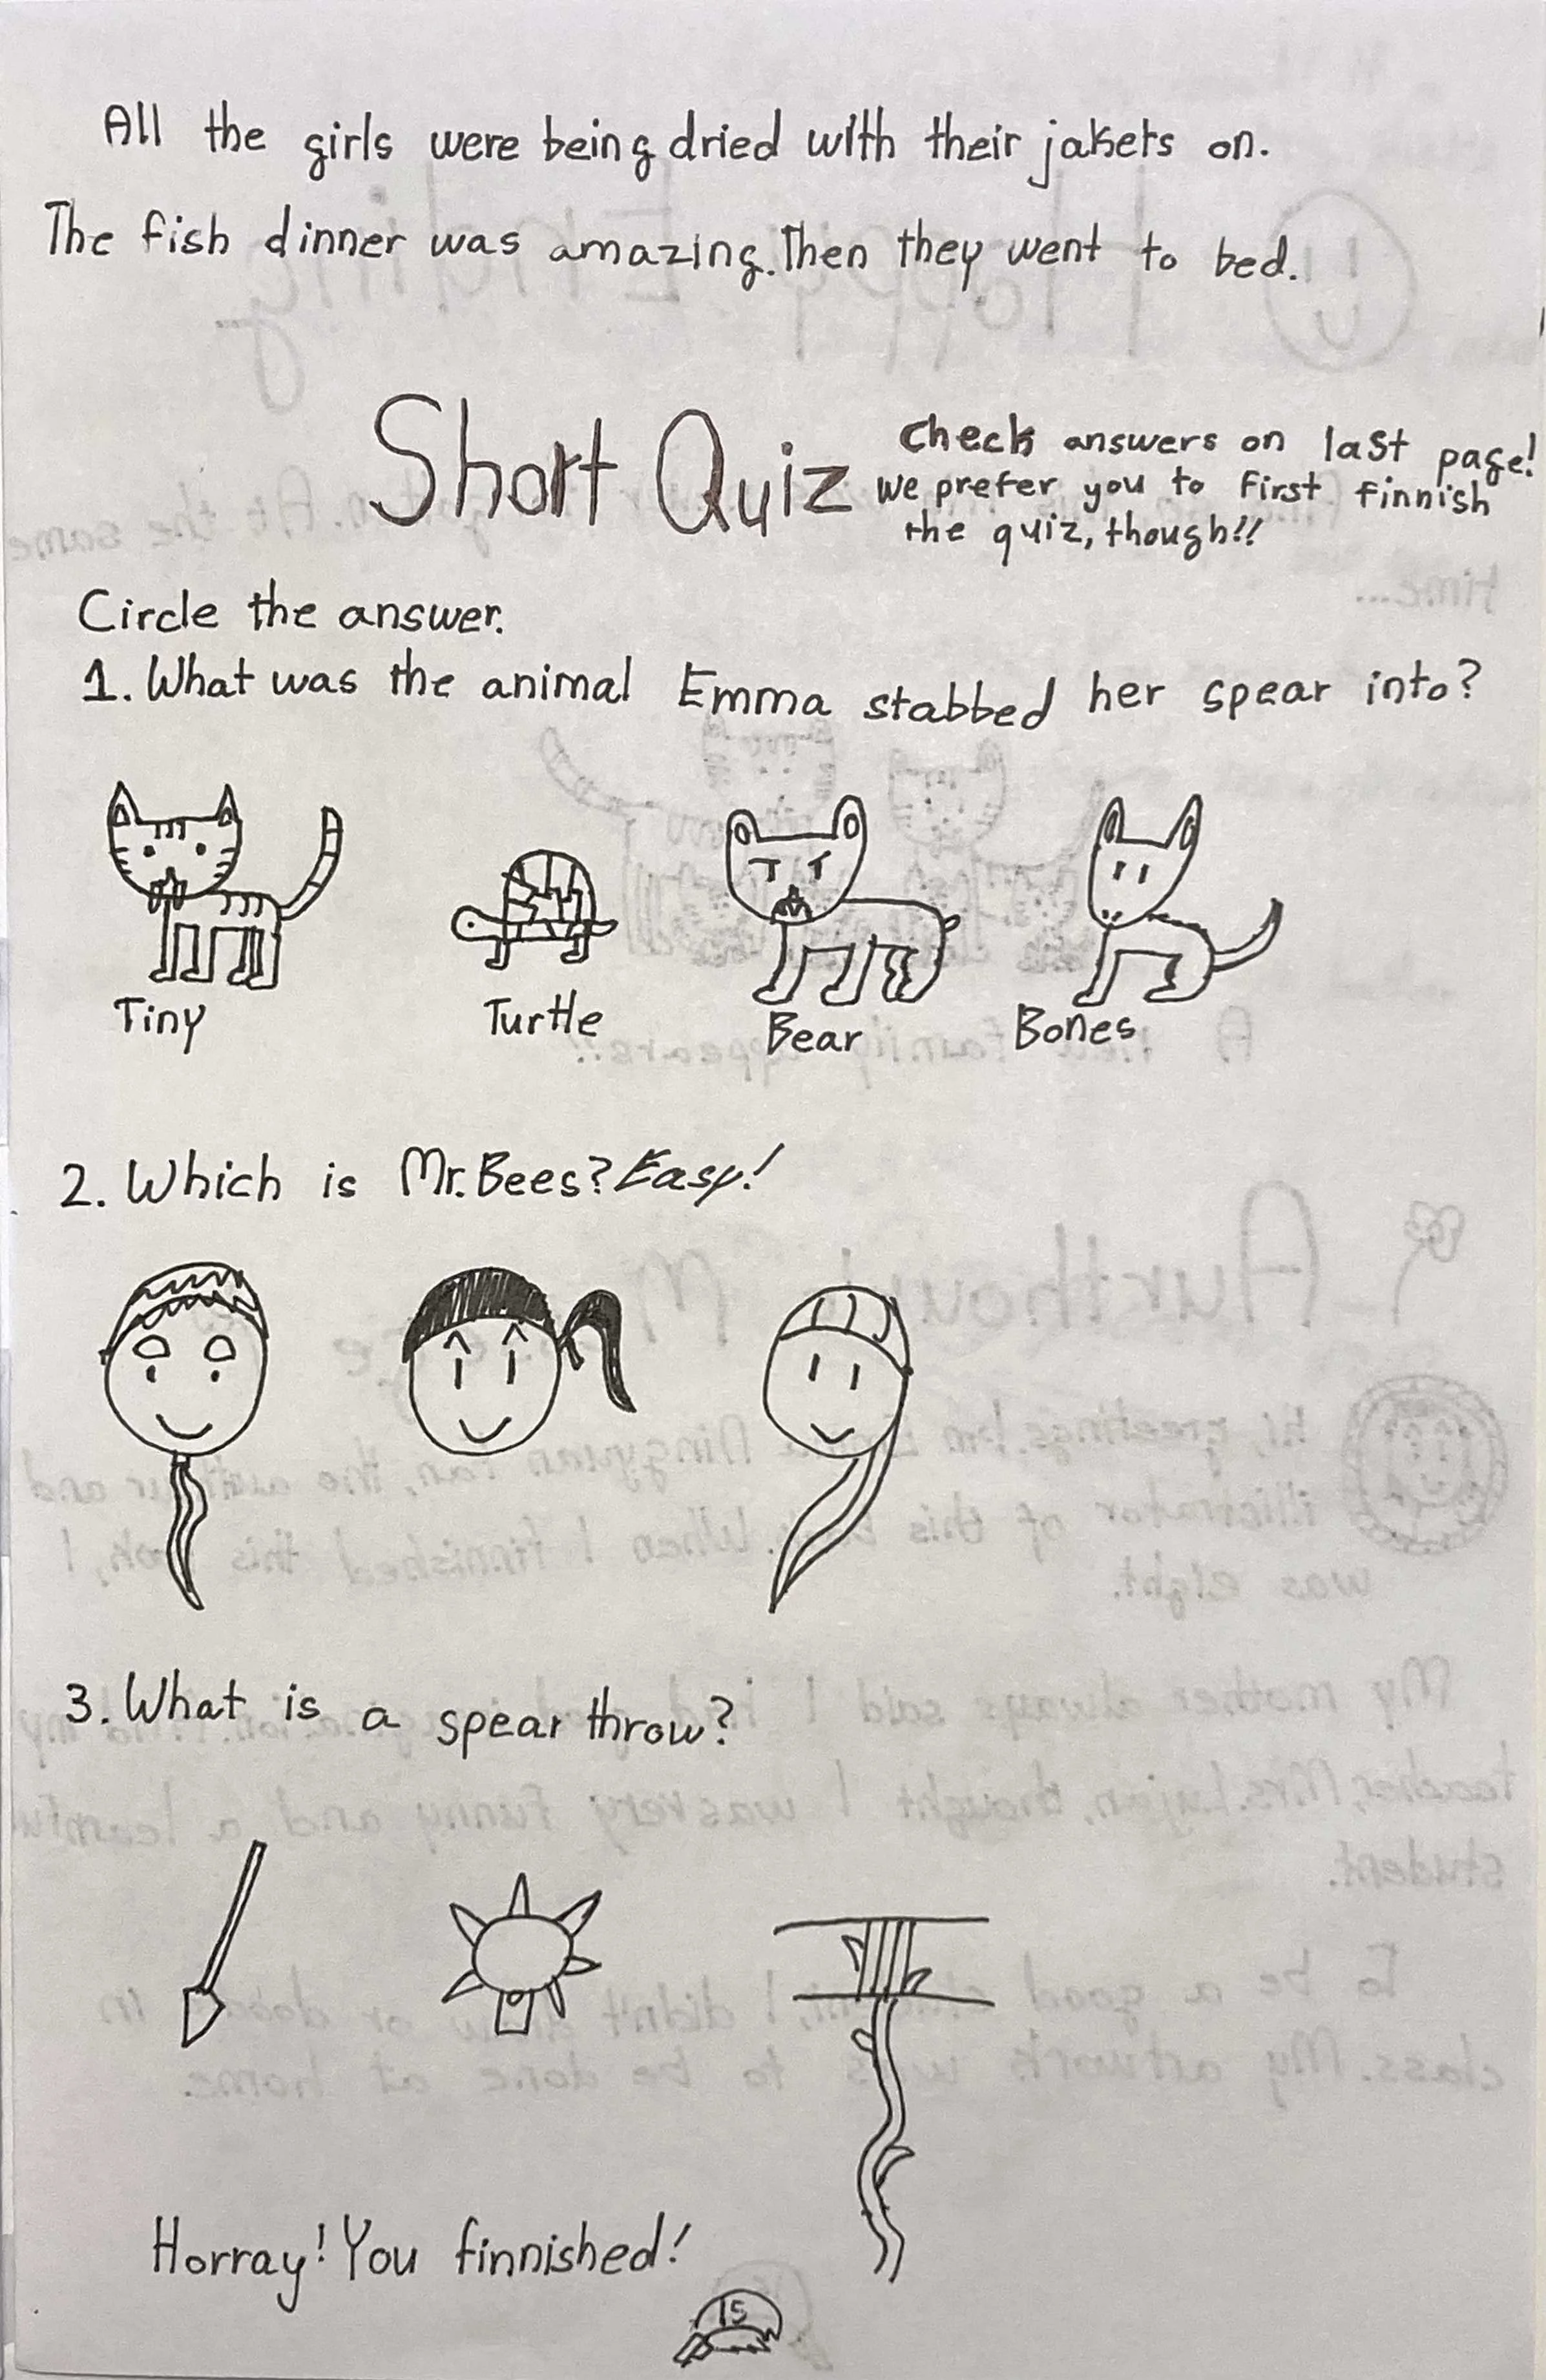 All the girls were being dried with their jakets on.
The fish dinner was amazing. Then they went to bed.
Short Quiz
Check answers on last page!
we prefer you to first finnish
the quiz, though!!
Circle the answer.
1. What was the animal Emma stabbed her spear into?
Tiny Turtle Bear Bones
2. Which is Mr. Bees? Easy!
3. What is a spear throw?
Horray! You finnished!
15